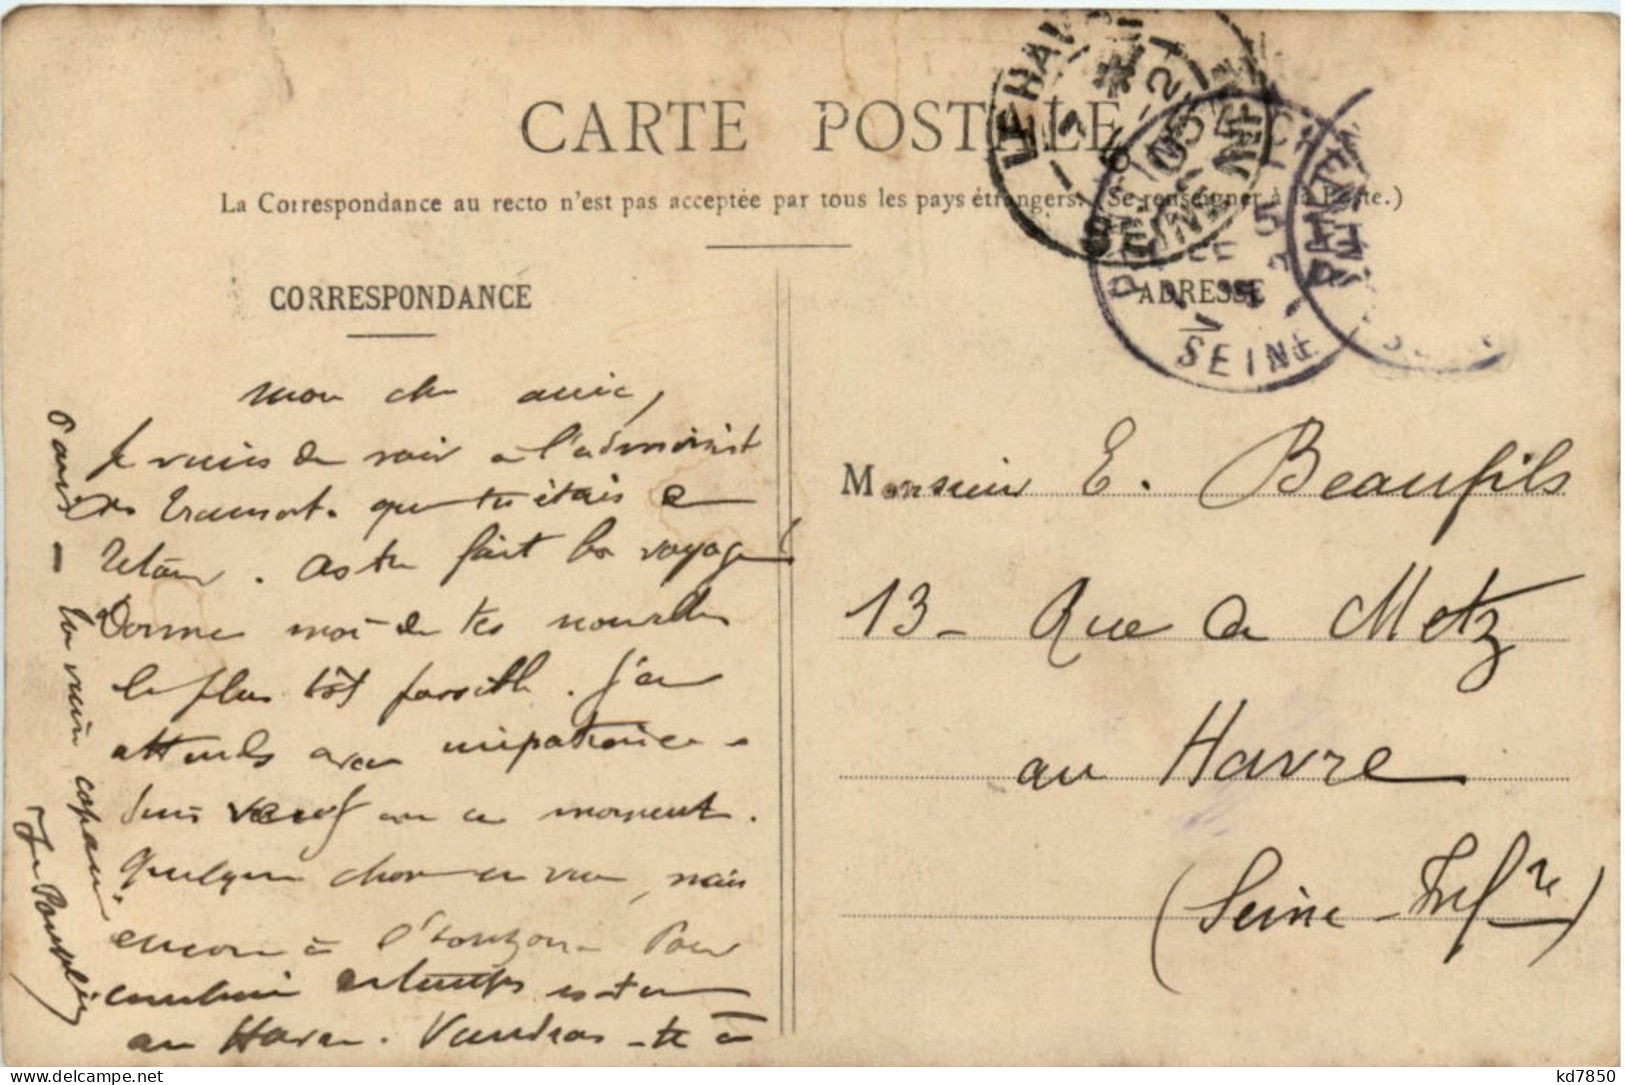 CARTE POSTALE
La Correspondance au recto n'est pas acceptée par tous les pays étrangers. (Se renseigner à la Poste.)
CORRESPONDANCE
ADRESSE
LE HAVRE
SEINE
mon cher ami,
Je viens de voir à l'administ
des Transat. que tu étais de
retour. As tu fait bon voyage?
Donne moi de tes nouvelles
le plus tôt possible. J'en
attends avec impatience.
Suis veuf en ce moment.
Quelque chose en vue, mais
encore à l'horizon. Pour
combien de temps es-tu
au Havre. Viendras-tu à
Paris — Ton vieux copain
Monsieur E. Beaufils
13 - Rue de Metz
au Havre
(Seine-Infre)
kd7850